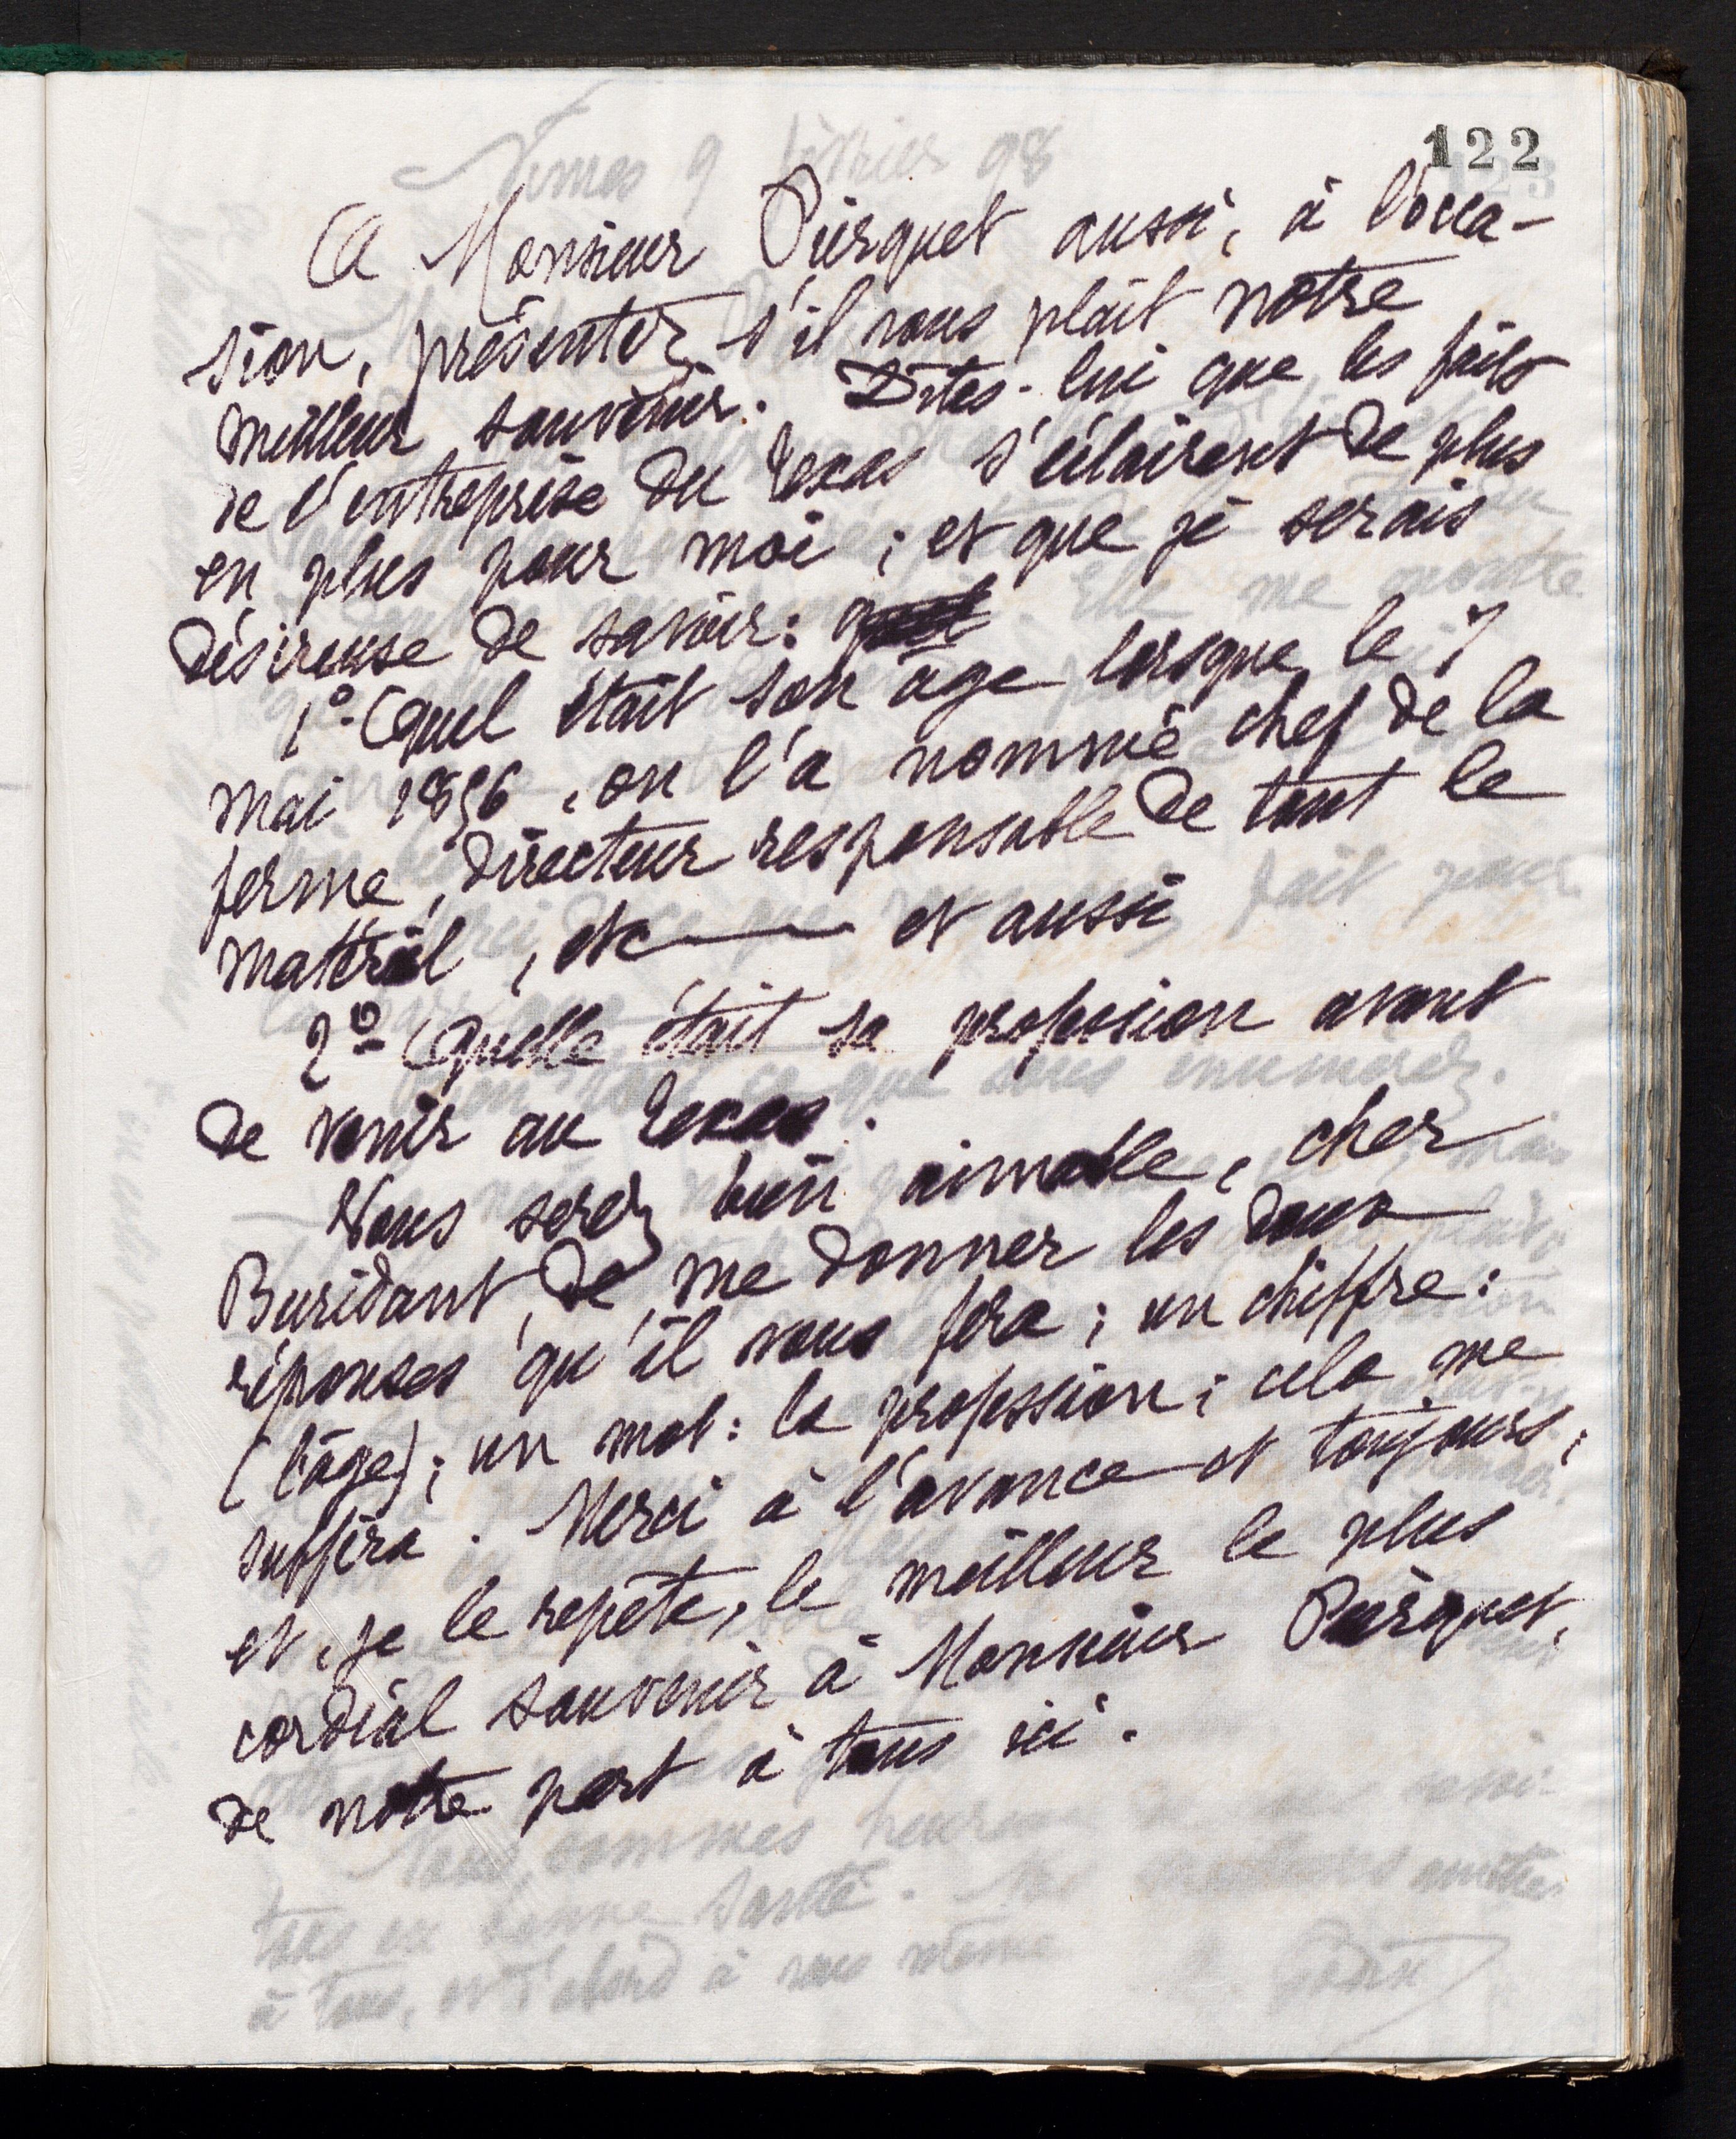 122
A Monsieur Piérquet aussi, à l'occa-
sion, présentez s'il vous plaît notre
meilleur souvenir. Dites-lui que les faits
de l'entreprise du Texas s'éclairent de plus
en plus pour moi ; et que je serais
désireuse de savoir :
1º Quel était son âge lorsque le 7
mai 1856, on l'a nommé chef de la
ferme, directeur responsable de tout le
matériel, etc — et aussi
2º Quelle était sa profession avant
de venir au Texas.
Vous serez bien aimable, cher
Buridant, de me donner les deux
réponses qu'il vous fera ; un chiffre :
(l'âge) ; un mot : la profession ; cela me
suffira. Merci à l'avance et toujours,
et, je le repète, le meilleur le plus
cordial souvenir à Monsieur Piérquet,
de notre part à tous ici.